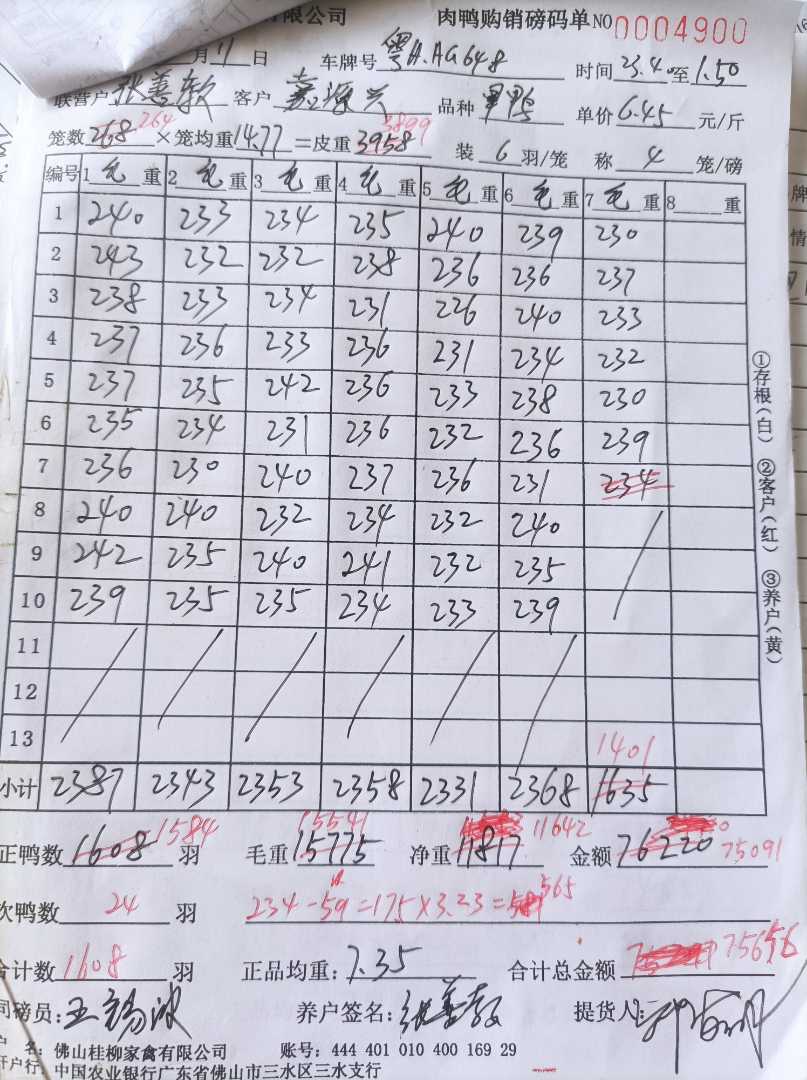 有限公司 肉鸭购销磅码单 NO 0004900
月 11 日 车牌号 粤A.AG648 时间 23.40 至 1.50
联营户 张善教 客户 嘉源兴 品种 单价 6.45 元/斤
笼数 268 264 ×笼均重 14.77 =皮重 3958 3899 装 6 羽/笼 称 4 笼/磅
编号 1 毛 重 2 毛 重 3 毛 重 4 毛 重 5 毛 重 6 毛 重 7 毛 重 8 重
1 240 233 234 235 240 239 230
2 243 232 232 238 236 236 237
3 238 233 234 231 226 240 233
4 237 236 233 236 231 234 232
5 237 235 242 236 233 238 230
6 235 234 231 236 232 236 239
7 236 230 240 237 236 231 234
8 240 240 232 234 232 240
9 242 235 240 241 232 235
10 239 235 235 234 233 239
11
12
13 1401
小计 2387 2343 2353 2358 2331 2368 1635
正鸭数 1608 1584 羽 毛重 15775 15541 净重 11817 11642 金额 76220 75091
次鸭数 24 羽 234-59=175×3.23= 565
合计数 1608 羽 正品均重: 7.35 合计总金额 75656
司磅员: 王锡波 养户签名: 张善教 提货人:
户 名: 佛山桂柳家禽有限公司 账号: 444 401 010 400 169 29
开户行: 中国农业银行广东省佛山市三水区三水支行
①存根(白) ②客户(红) ③养户(黄)